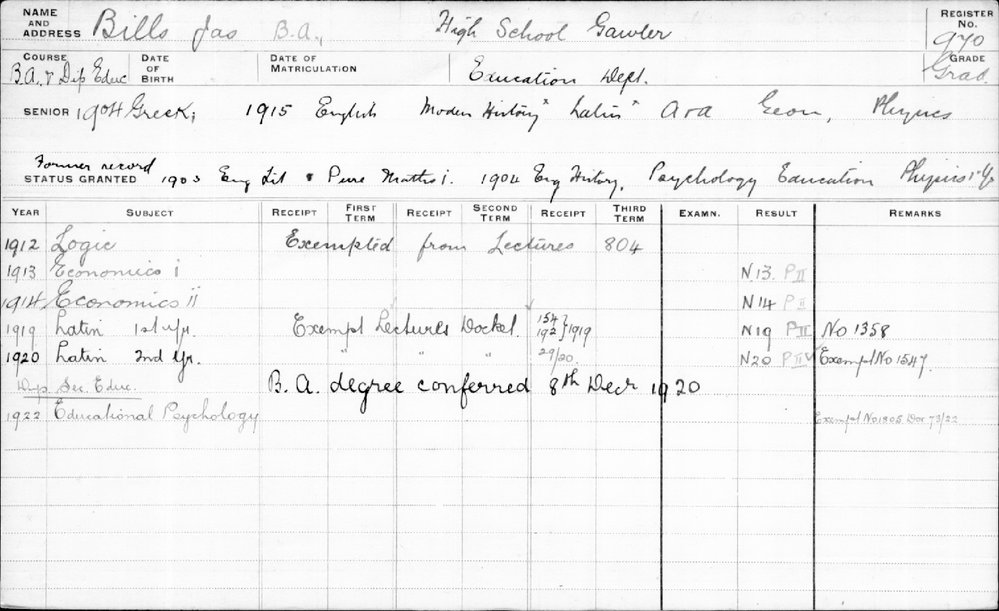 NAME AND ADDRESS Bills Jas B.A., High School Gawler REGISTER No. 970
COURSE B.A. & Dip Educ DATE OF BIRTH DATE OF MATRICULATION Education Dept. GRADE Grad.
SENIOR 1904 Greek; 1915 English Modern History " Latin " Geom, Physics
Former record
STATUS GRANTED 1903 Eng Lit & Pure Maths i. 1904 Eng History, Psychology Education Physics 1st Yr
YEAR SUBJECT RECEIPT FIRST TERM RECEIPT SECOND TERM RECEIPT THIRD TERM EXAMN. RESULT REMARKS
1912 Logic Exempted from Lectures 804
1913 Economics i N.13. P II
1914 Economics ii N14 P II
1919 Latin 1st Yr. Exempt Lectures Docket. 154 192 } 1919 N19 P II No 1358
1920 Latin 2nd Yr. " " " 29/20. N20 P II Exempt No 1547.
Dip. Sec. Educ. B.A. degree conferred 8th Decr 1920
1922 Educational Psychology Exempt No 1805 Doc 73/22